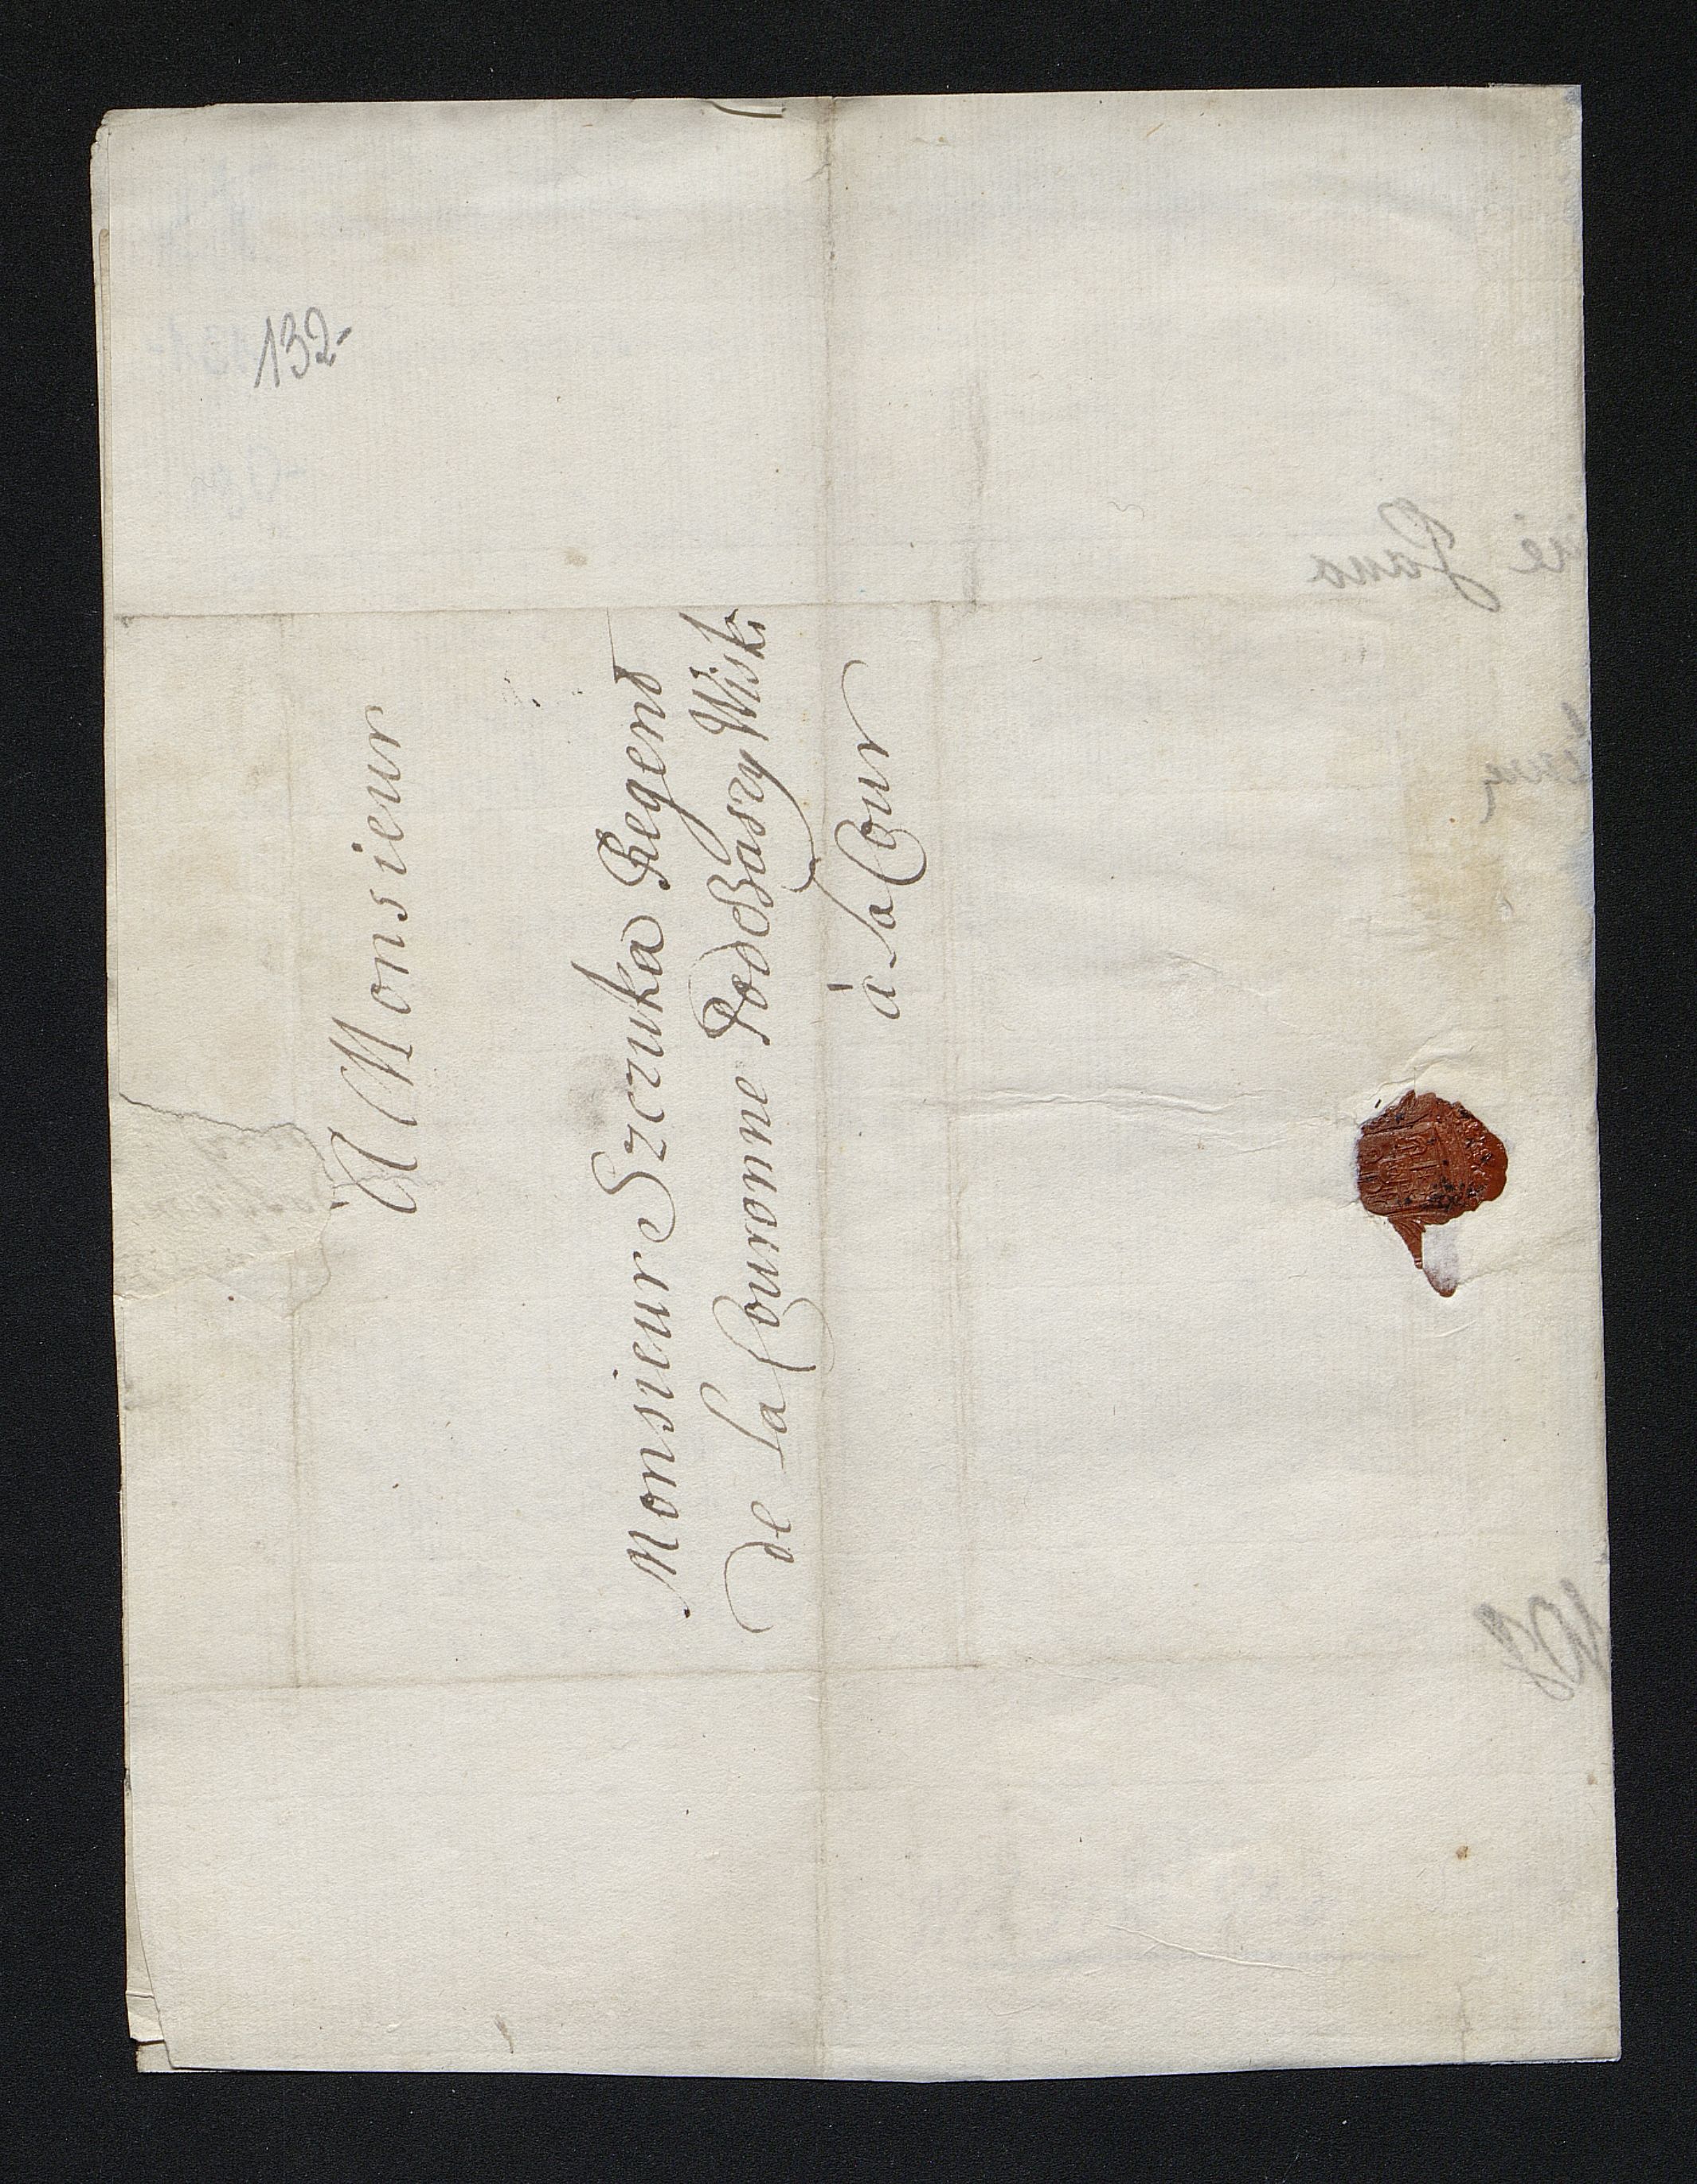 132-
A Monsieur
Monsieur Szczuka Regend
de la Couronne PodCzaszy Wiski
à la Cour